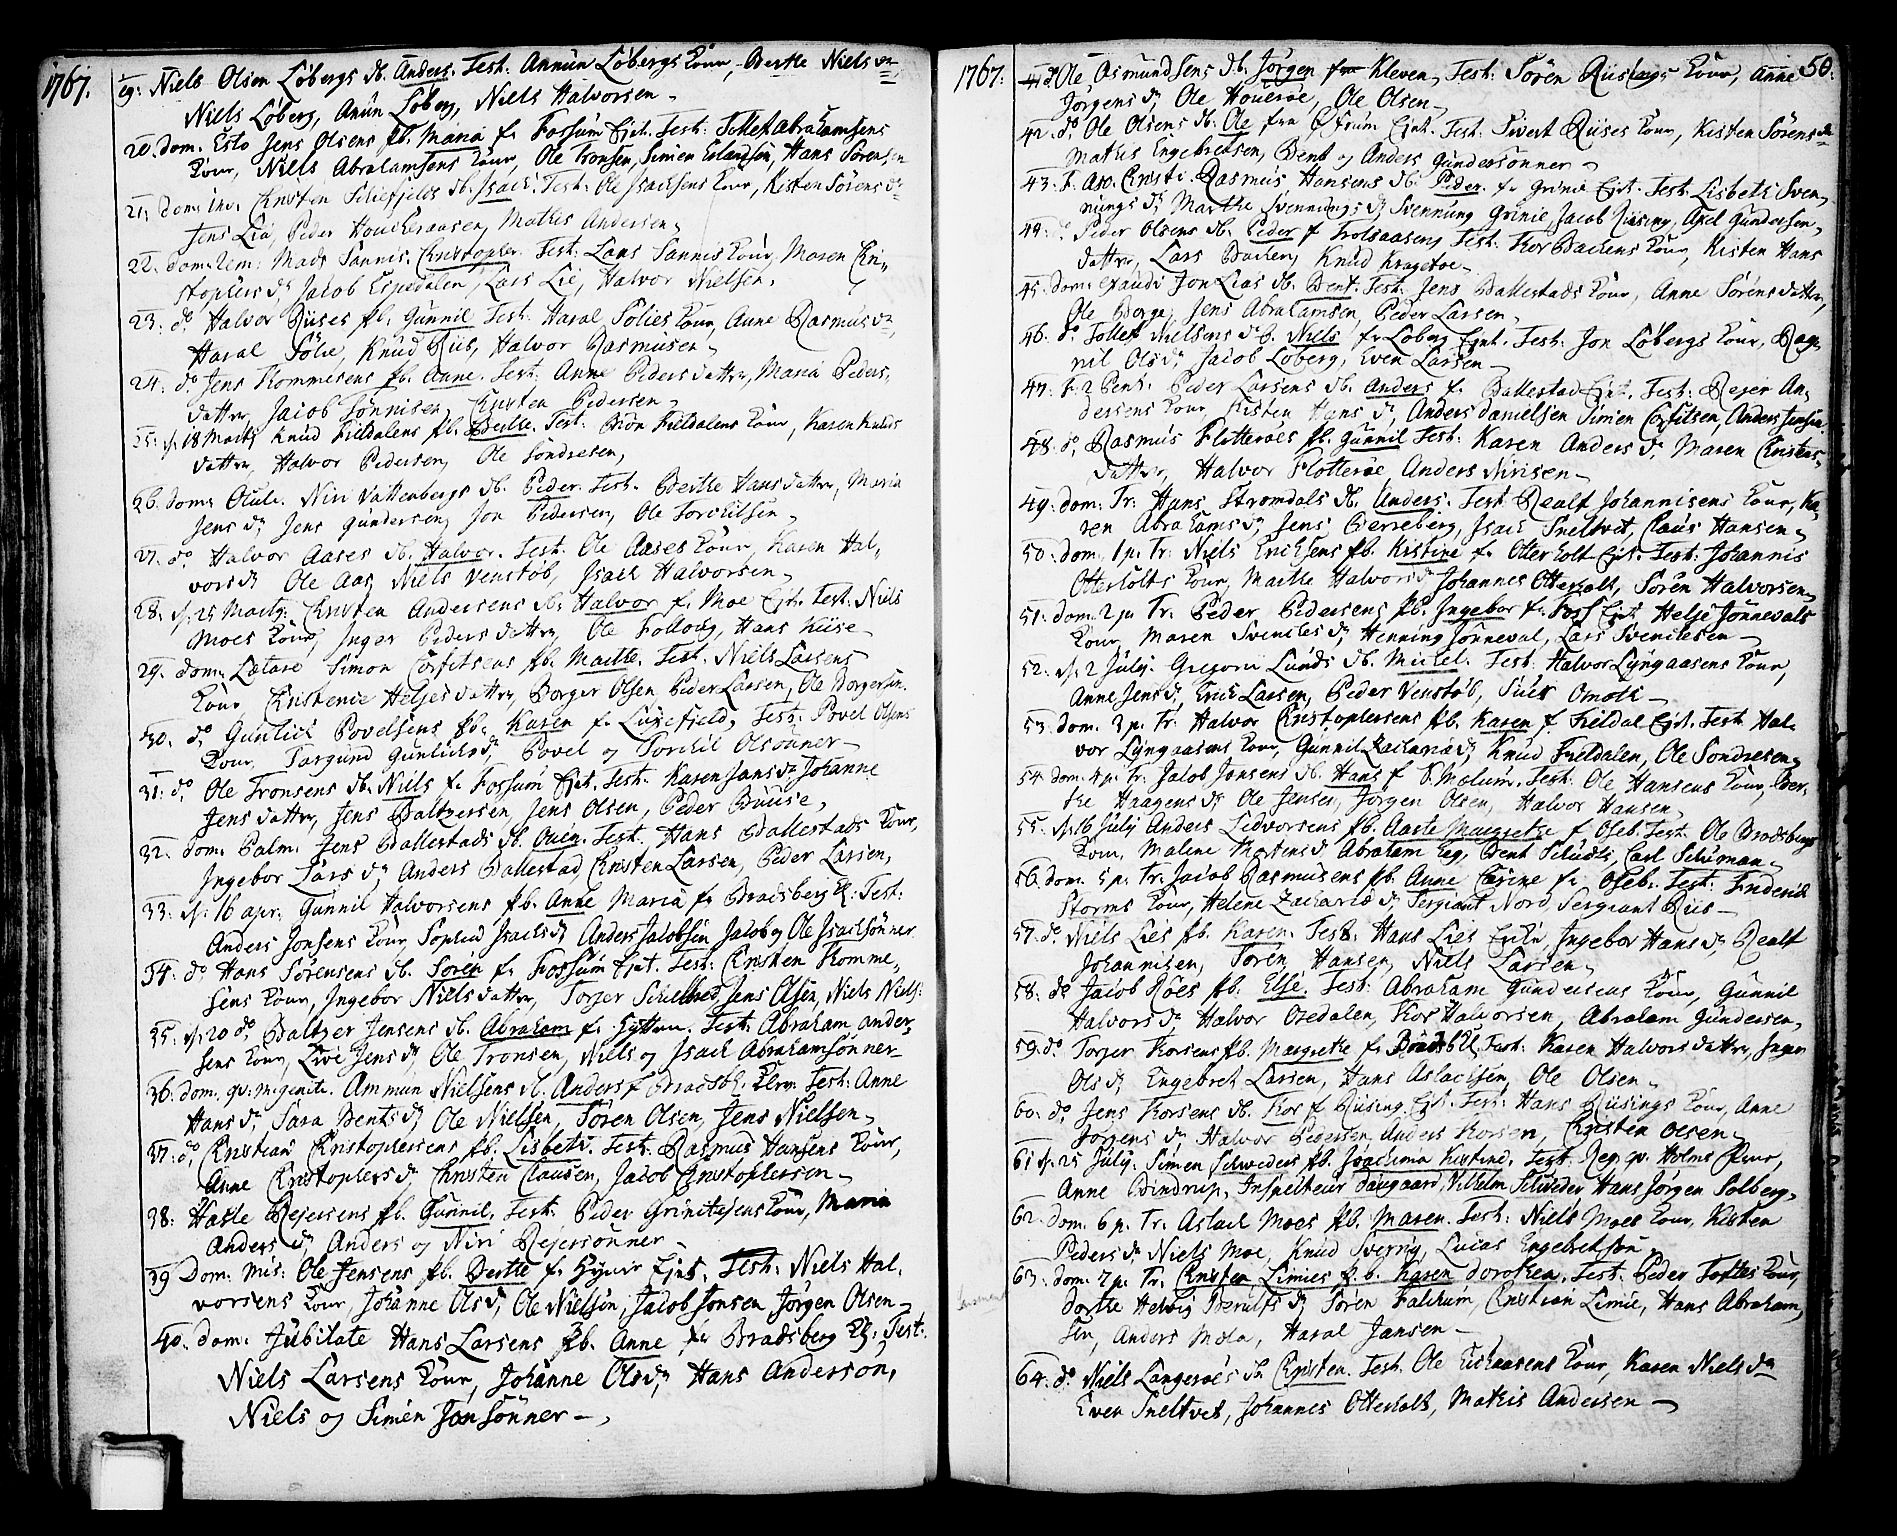 1767.
19: Niels Olsen Löbergs db. Anders. Test: Anmun Löbergs Kone, Berthe Niels dr
Niels Löberg, Anun Löberg, Niels Halvorsen
20. dom. Esto Jens Olsens pb. Maria fr. Fossum Ejet. Test: Tollef Abrahamsens
Kone, Niels Abrahamsens Kone, Ole Tronsen, Simen Erlandsen, Hans Sörensen
21. dom: inv: Christen db. Isach. Test: Ole Isachsens Kone, Kisten Sörens dr
Jens Lia, Peder, Mathis Andersen
22. dom: rem: Mads Sannis. Christopher. Test: Lars Sannis Kone, Maren Chri-
stophers dr Jacob Espedalen, Lars Lie, Halvor Nielsen.
23. do Halvor Riises pb. Gunnil Test: Haral Solies Kone, Anne Rasmus dr
Haral Solie, Knud Riis, Halvor Rasmusen
24. do Jens Kommesens pb. Anne. Test: Anne Peders datter, Maria Peders
datter, Jacob Sönnisen, Christen Pedersen
25. d. 18 Martz Knud Fieldalens pb. Berthe. Test: Biön Fieldalens Kone, Karen Knuds
datter, Halvor Pedersen, Ole Sondresen,
26. dom: Oculi. Niri Vattenbergs db. Peder. Test. Berthe Hans datter, Maria
Jens dr Jens Gundersen, Jon Pedersen, Ole Torchilsen
27. do Halvor Aases db. Halvor. Test. Ole Aases Kone, Karen Hal-
vors dr Ole Aas, Niels Venstöb, Isach Halvorsen
28. d. 25 Martz: Christen Andersens db. Halvor fr. Moe Ejet. Test: Niels
Moes Kone, Inger Peders datter, Ole Follaug, Hans Kiise
29. dom. Lætare Simon Corfitsens pb. Marthe. Test. Niels Larsens
Kone Christence Heljes datter, Borger Olsen Peder Larsen, Ole Borgersen.
30. do Gunlich Povelsens pb. Karen fr. Luxefjeld, Test: Povel Olsens
Kone, Torgund Gunlichs dr Povel og Torchil Olsönner
31: do Ole Tronsens db. Niels fr. Fossum Ejet. Test: Karen Jans dr Johanne
Jens datter, Jens Baltzersen, Jens Olsen, Peder Buuse,
32. dom. Palm. Jens Ballestads db. Ouen. Test. Hans Ballestads Kone,
Ingebor Lars dr Anders Ballestad, Christen Larsen, Peder Larsen,
33. d. 16 apr: Gunnil Halvorsens pb. Anne Maria fr. Bradsberg Kl. Test:
Anders Jonsens Kone, Sophia Isachs dr Anders Jacobsen Jacob og Ole Isachsönner
34. do Hans Sörensens db. Sören fr. Fossum Ejet. Test: Christen Komme-
sens Kone, Ingebor Niels datter, Torjer, Jens Olsen, Niels Niels:
35. d. 20 do Baltzer Jensens db. Abraham fr. Hytten. Test: Abraham Ander-
sens Kone, Live Jens dr, Ole Tronsen, Niels og Isach Abrahamsönner
36. dom. qv: m: genite. Ammun Nielsens db. Anders fr Bradsb. Test: Anne
Hans dr Sara Bents dr Ole Nielsen, Sören Olsen, Jens Nielsen
37. do Christian Christophersens pb. Lisbeth. Test: Rasmus Hansens Kone,
Anne Christophers dr Christen Clausen, Jacob Christophersen
38: Halle Rejersens pb. Gunnil. Test: Peder Kone, Maria
Anders dr Anders og Niri Rejersönner
39 Dom. Mis: Ole Jensens pb. Berthe fr. Ejet. Test: Niels Hal-
vorsens Kone, Johanne Ols dr Ole Nielsen, Jacob Jonsen, Jörgen Olsen
40. dom: Jubilate Hans Larsens pb. Anne fr Bradsberg Kl: Test:
Niels Larsens Kone, Johanne Ols dr, Hans Anderson,
Niels og Simen Jonsönner

1767. 50.
41 do Ole Asmundsens db. Jörgen fra Kleven, Test: Sören Riisings Kone, Anne
Jörgens dr Ole Houeröe, Ole Olsen
42. do Ole Olsens db: Ole fra Ejet. Test: Sivert Riises Kone, Kisten Sörens dr
Mathis Engebretsen, Bent og Anders Gundersönner
43. F. Asc. Christi. Rasmus Hansens db. Peder. fr Grinie Ejet. Test. Lisbeth Sven-
nungs dr Marthe Svennungs dr Svennung Grinie, Jacob Riising, Axel Gundersen,
44. do Peder Olsens db. Peder f Trolsaasen, Test: Kor Backens Kone, Kisten Hans
datter, Lars Backen, Knud Kragetoe
45. dom: exaudi Jon Lias db. Bent: Test: Jens Ballestads Kone, Anne Sörens datter,
Ole Borge, Jens Abrahamsen, Peder Larsen
46. do Tollef Nielsens db. Niels fr Löberg Ejet. Test: Jon Löbergs Kone, Rag-
nil Ols dr Jacob Löberg, Even Larsen
47. F. 2 Pent: Peder Larsens db. Anders fr Ballestad Ejet. Test: Rejer An-
dersens Kone, Kisten Hans dr, Anders Danielsen Simen Corfitsen, Anders Jensen
48. do Rasmus Flotteröes pb. Gunnil Test: Karen Anders dr Maren Christens
datter, Halvor Flotteröe, Anders Nirisen
49. dom: Tr: Hans Stromdals db. Anders. Test: Realf Johannisens Kone, Ka-
ren Abrahams dr Jens Berreberg, Isach Sneltvet, Claus Hansen
50. dom. 1 p. Tr: Niels Erichsens pb. Kistine fr Otterholt Ejet. Test: Johannis
Otterholts Kone, Marthe Halvors dr Johannes Otterholt, Sören Halvorsen
51. dom: 2 p. Tr: Peder Pedersens pb. Ingebor fr. Foss Ejet. Helje Jönnevals
Kone, Maren Svenches dr, Henning Jönneval, Lars Svenchesen
52. d. 2 July. Gregorii Lunds db. Michel. Test: Halvor Lyngaasens Kone,
Anne Jens dr, Erich Larsen, Peder Venstöb, Omoth
53 dom. 3 p. Tr: Halvor Christophersens pb. Karen f. Fieldal Ejet. Test: Hal-
vor Lyngaasens Kone, Gunnil Zacharia dr, Knud Fieldalen, Ole Sondresen
54 dom. 4 p. Tr: Jacob Jonsens db. Hans f S. Molum. Test: Ole Hansens Kone, Ber-
the Haagens dr Ole Jensen, Jörgen Olsen, Halvor Hansen
55. d. 16 July Anders Ledvorsens pb. Aaste Margrethe f Oseb. Test: Ole Bradsbergs
Kone, Malene Mortens dr Abraham Eeg, Bent Schudts, Carl Schuman
56 dom. 5 p. Tr: Jacob Rasmusens pb. Anne Cirine fr. Oseb. Test: Friderich
Storms Kone, Helene Zacharias dr Sergiant Nord, Sergiant Riis
57. do Niels Lies pb. Karen. Test: Hans Lies Enke, Ingebor Hans dr Realf
Johannisen, Sören Hansen, Niels Larsen
58: do Jacob Röes pb. Else. Test: Abraham Gundersens Kone, Gunnil
Halvors dr Halvor Osedalen, Kor Halvorsen, Abraham Gundersen,
59. do Torjer Korsens pb. Margrethe fr Bradsb Kl, Test: Karen Halvors datter, Inger
Ols dr Engebret Larsen, Hans Aslachsen, Ole Olsen
60: do Jens Korsens db. Kor f Riising Ejet. Test: Hans Riisings Kone, Anne
Jörgens dr Halvor Pedersen, Anders Korsen, Christen Olsen
61 d. 25 July. Simen Schweders pb. Joachima Kistine, Test: Reg. qv. Holms Frue,
Anne Bindrup, Inspecteur Daugaard, Vilhelm Schweder Hans Jörgen Solberg
62. Dom. 6 p. Tr: Aslach Moes pb. Maren. Test: Niels Moes Kone, Kisten
Peders dr Niels Moe, Knud Sverrig, Lucas Engebretsön
63: dom: 7 p. Tr: Christen Limies p.b. Karen Dorothea. Test: Peder Toftes Kone,
Dorthe Hedvig dr Sören Falchum, Christian Limie, Hans Abraham-
sen, Anders Mæla, Haral Jansen
64: do Niels Langeröes db Christen. Test: Ole Kone, Karen Niels dr
Even Sneltvet, Johannes Otterholt, Mathis Andersen